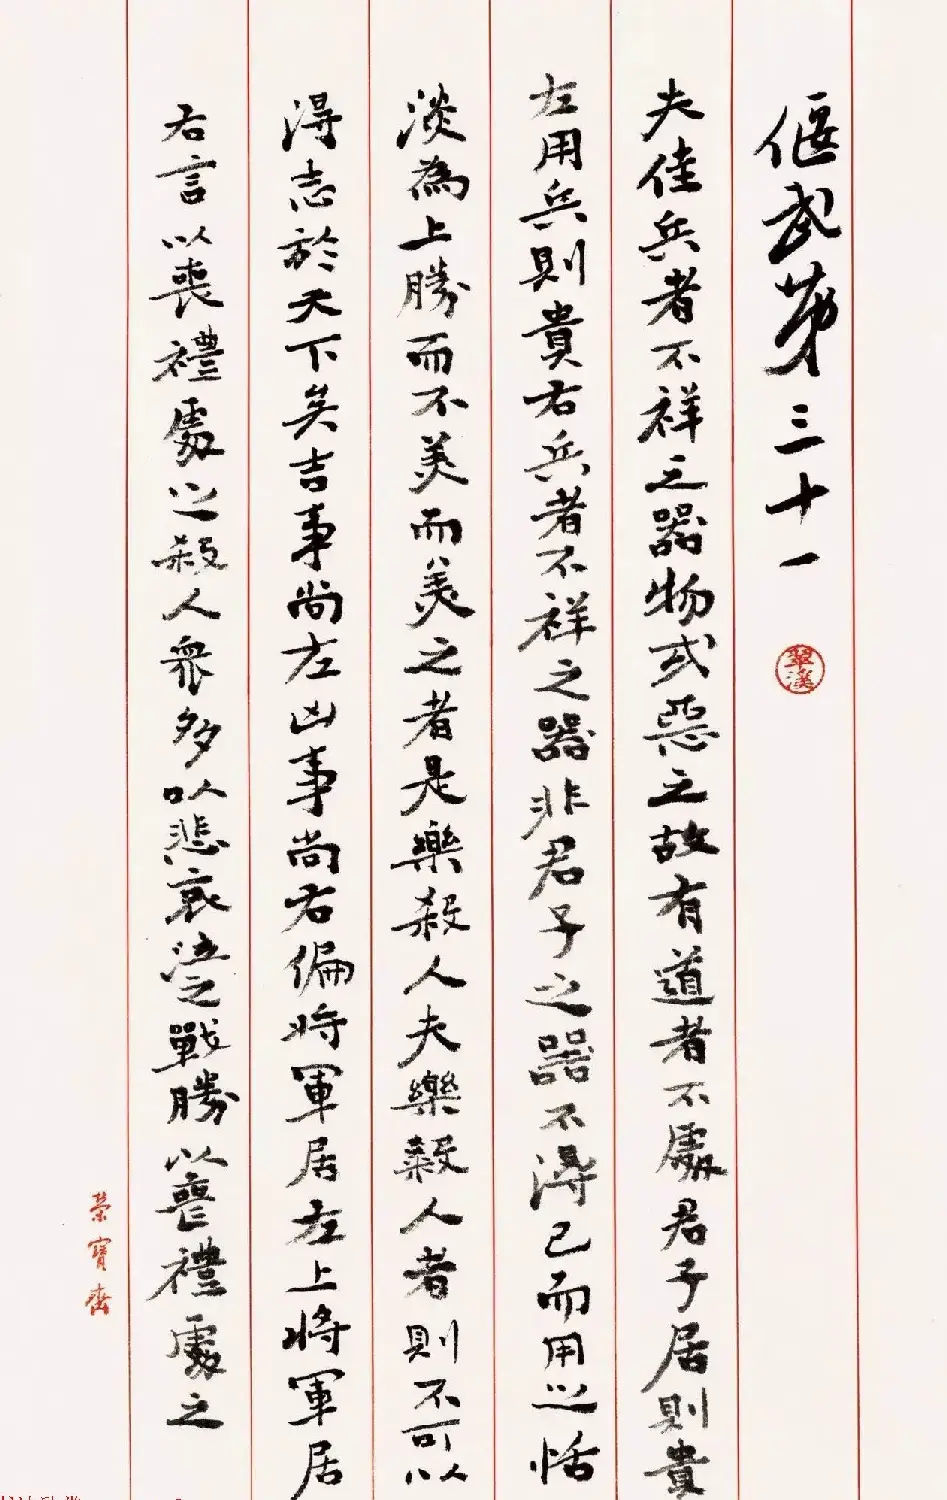 偃武第三十一
翠漢
夫佳兵者不祥之器物或惡之故有道者不處君子居則貴
左用兵則貴右兵者不祥之器非君子之器不得已而用之恬
淡為上勝而不美而美之者是樂殺人夫樂殺人者則不可以
得志於天下矣吉事尚左凶事尚右偏將軍居左上將軍居
右言以喪禮處之殺人衆多以悲哀泣之戰勝以喪禮處之
榮寶齋